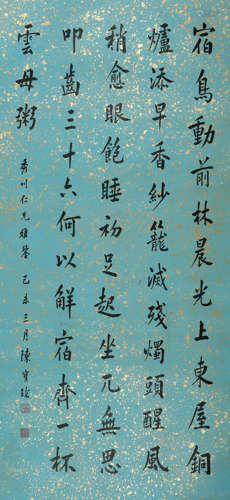 宿鳥動前林晨光上東屋銅
爐添早香紗籠滅殘燭頭醒風
稍愈眼飽睡初足起坐兀無思
叩齒三十六何以解宿齊一杯
雲母粥
秀川仁兄雅鑒 己未三月陳寶琛